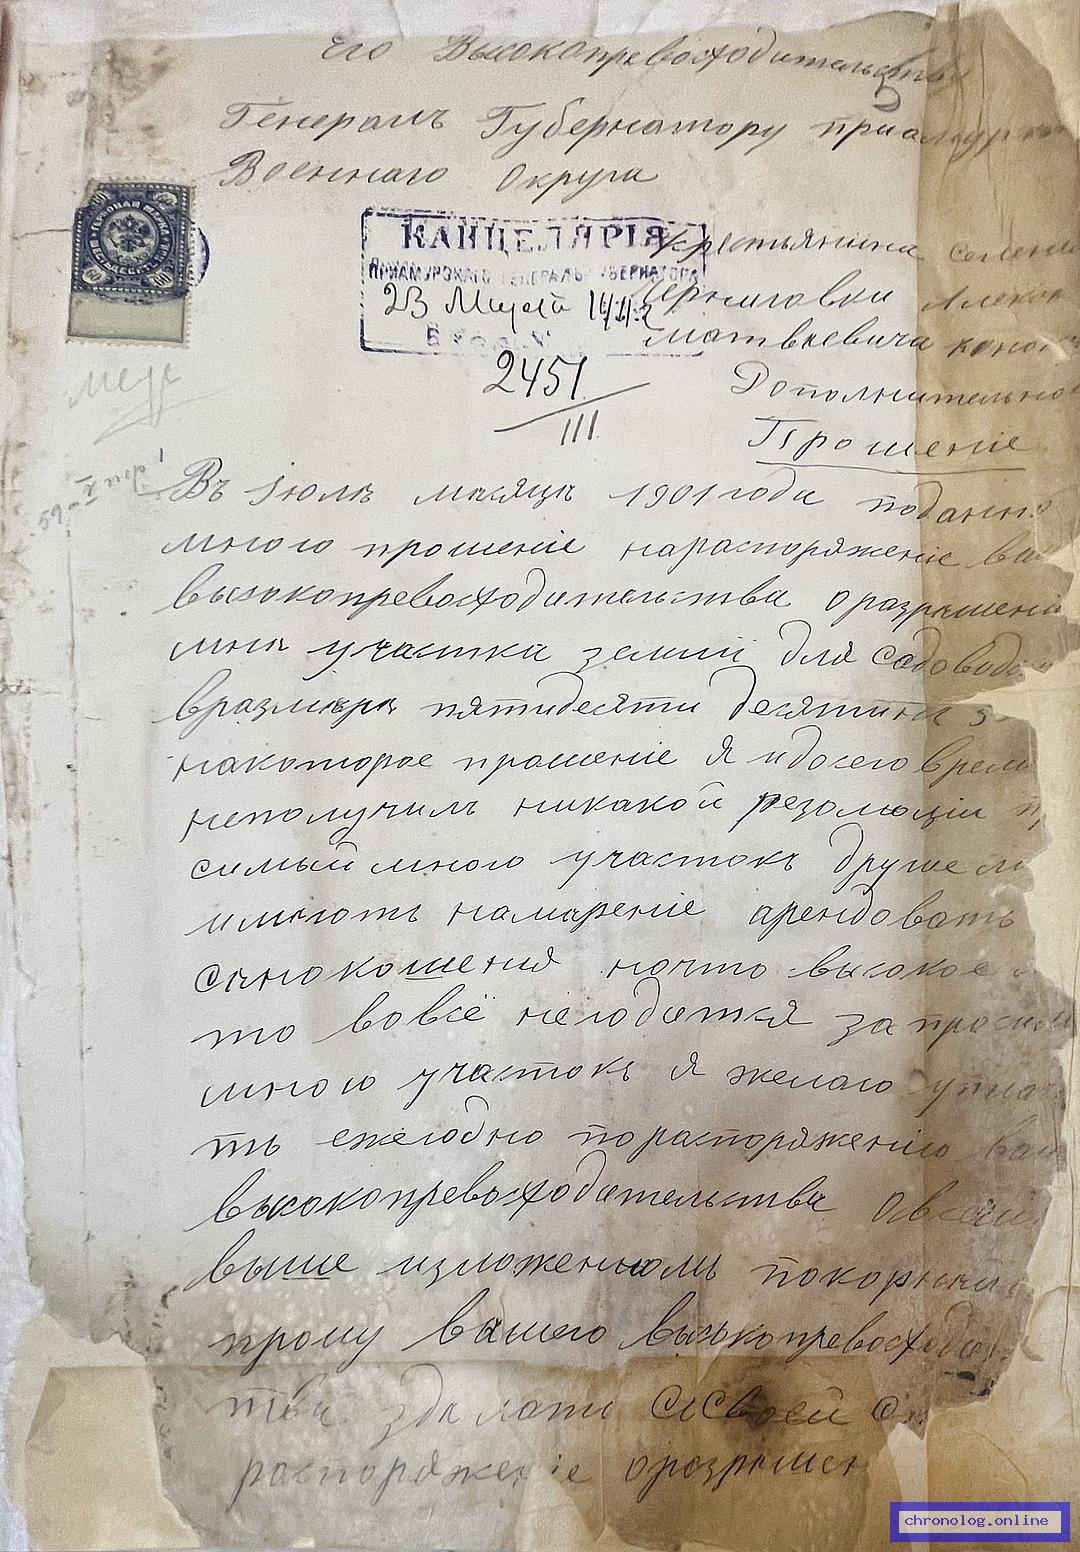 Его Высокопревосходительству
Генералъ Губернатору приамурск
Военнаго Округа
КАНЦЕЛЯРІЯ
ПРИАМУРСКАГО ГЕНЕРАЛЪ-ГУБЕРНАТОРА
23
2451
III.
крестьянина селенія
Черниговки Алекс
Матвѣевича
Дополнительно
Прошеніе
Въ Јюлѣ мѣсяцѣ 1901 года поданно
мною прошеніе нараспоряженіе ва
высокопревосходительства оразрѣшеніи
мнѣ участка землѣ для садоводс
вразмѣрѣ пятидесяти десятинъ
накоторое прошеніе я идосего врем
неполучилъ никакой резолюціи п
симый мною участокъ друше
имѣютъ намѣреніе арендовать
сѣнокошенія ночто высокое
то вовсё негодится запросим
мною участокъ я желаю уплач
ть ежегодно пораспоряженію ваш
высокопревосходительства Овсем
выше изложенномъ покорнѣй
прошу вашего высокопревосходи
тва здѣлати Сосвоей
распоряженіе оразрѣшен
chronolog.online